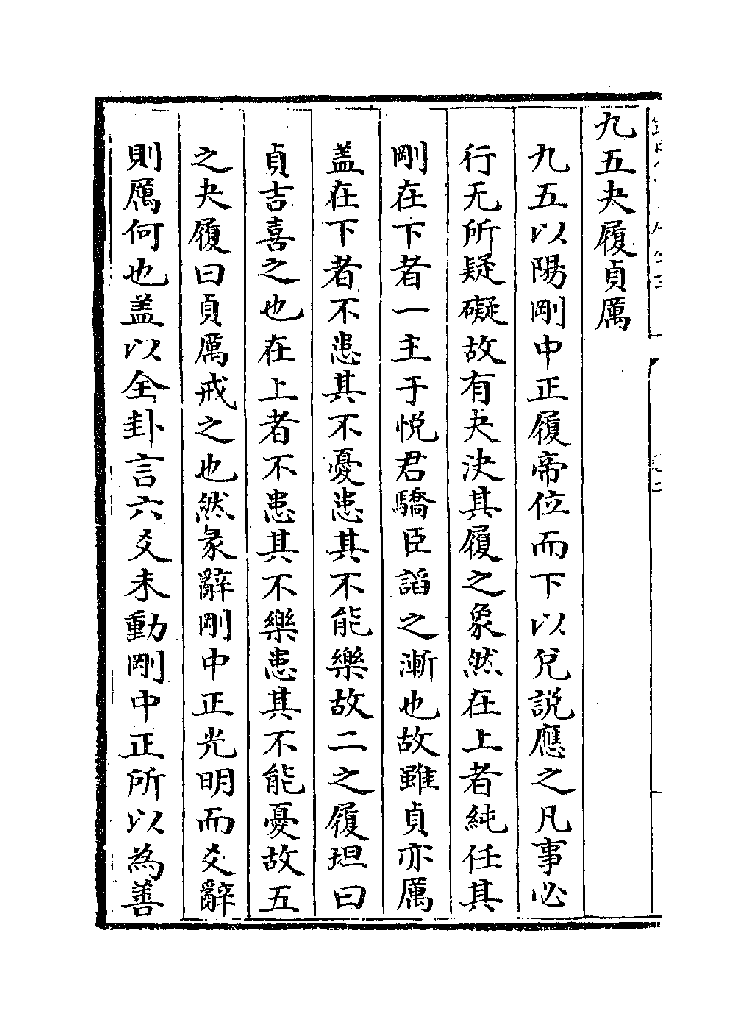 九五夬履貞厲
九五以陽剛中正履帝位而下以兌說應之凡事必
行无所疑礙故有夬決其履之象然在上者純任其
剛在下者一主于悅君驕臣諂之漸也故雖貞亦厲
盖在下者不患其不憂患其不能樂故二之履坦曰
貞吉喜之也在上者不患其不樂患其不能憂故五
之夬履曰貞厲戒之也然彖辭剛中正光明而爻辭
則厲何也盖以全卦言六爻未動剛中正所以為善